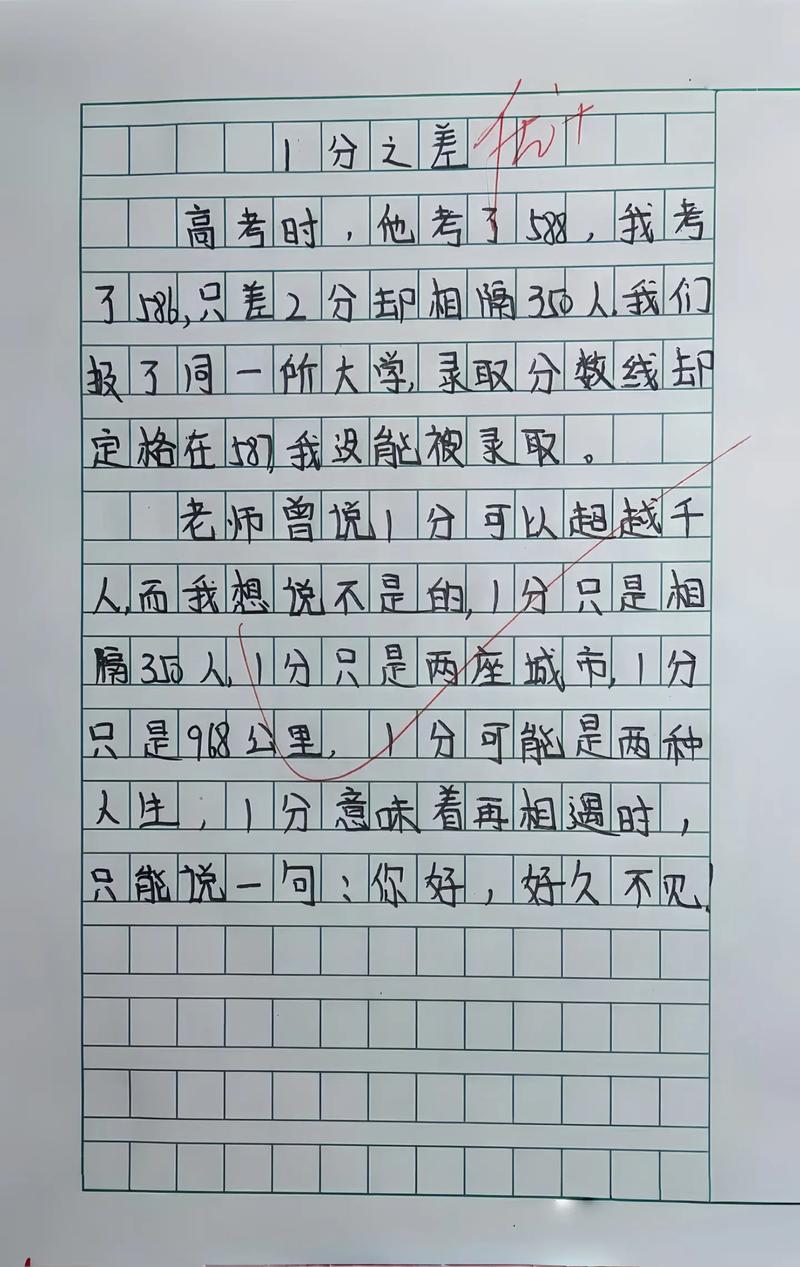 1分之差 优+
高考时，他考了588，我考
了586,只差2分却相隔350人.我们
报了同一所大学,录取分数线却
定格在587,我没能被录取。
老师曾说1分可以超越千
人,而我想说不是的,1分只是相
隔350人,1分只是两座城市,1分
只是968公里,1分可能是两种
人生，1分意味着再相遇时，
只能说一句：你好，好久不见!